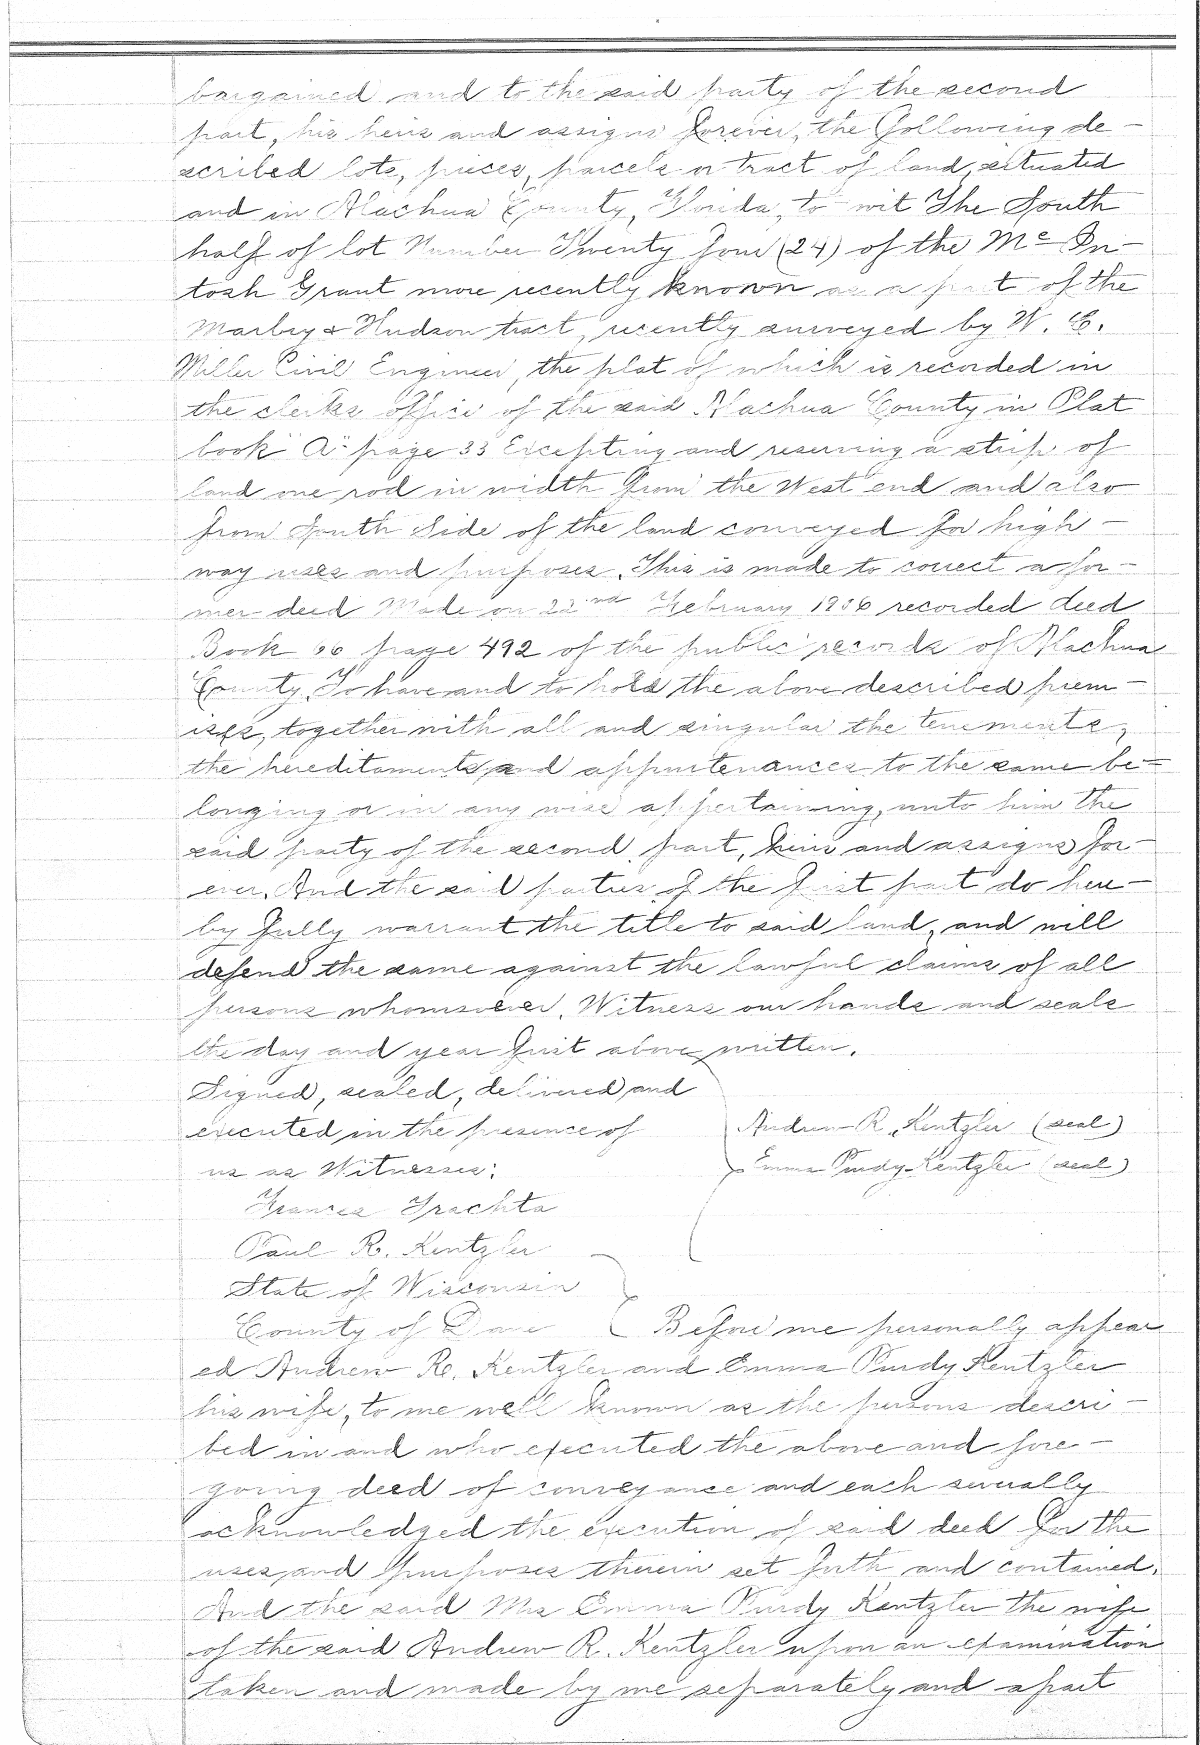 bargained and to the said party of the second
part, his heirs and assigns forever, the following de-
scribed lots, pieces, parcels or tract of land, situated
and in Alachua County, Florida, to wit The South
half of lot Number Twenty four (24) of the Mc In-
tosh Grant more recently known as a part of the
Marbey & Hudson tract, recently surveyed by W. E.
Miller Civil Engineer, the plat of which is recorded in
the clerks office of the said Alachua County in Plat
book "A" page 33 Excepting and reserving a strip of
land one rod in width from the West end and also
from South Side of the land conveyed for high-
way uses and purposes. This is made to correct a for-
mer deed Made on 22nd February 1906 recorded deed
Book 66 page 492 of the public records of Alachua
County. To have and to hold the above described prem-
ises, together with all and singular the tenements,
the hereditaments and appurtenances to the same be-
longing or in any wise appertaining, unto him the
said party of the second part, heirs and assigns for-
ever. And the said parties of the first part do here-
by fully warrant the title to said land, and will
defend the same against the lawful claims of all
persons whomsoever. Witness our hands and seals
the day and year first above written.
Signed, sealed, delivered and
executed in the presence of
us as Witnesses:
Andrew R. Kentzler (seal)
Emma Purdy Kentzler (seal)
Frances Trachta
Paul R. Kentzler
State of Wisconsin
County of Dane Before me personally appear
ed Andrew R. Kentzler and Emma Purdy Kentzler
his wife, to me well known as the persons descri-
bed in and who executed the above and fore-
going deed of conveyance and each severally
acknowledged the execution of said deed for the
uses and purposes therein set forth and contained.
And the said Mrs Emma Purdy Kentzler the wife
of the said Andrew R. Kentzler upon an examination
taken and made by me separately and apart